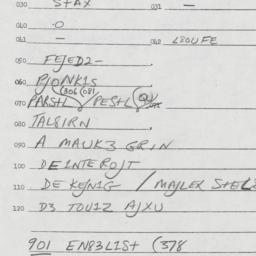 030 STAX 031 —
040 O
041 — 042 L80UFE
050 FEJED2—
060 PJONKIS
070 PARSTL (306 081) / PESTL
080 TALSIRN
090 A MAUK3 GRIN
100 DEINTEROJT
110 DE KEJNIG / MAJLER STELS
120 D3 TOU1Z AJXU
901 EN83LIST (378